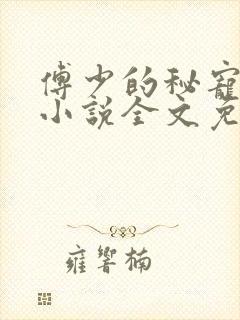 傅少的秘寵
小說全文免
雍響楠